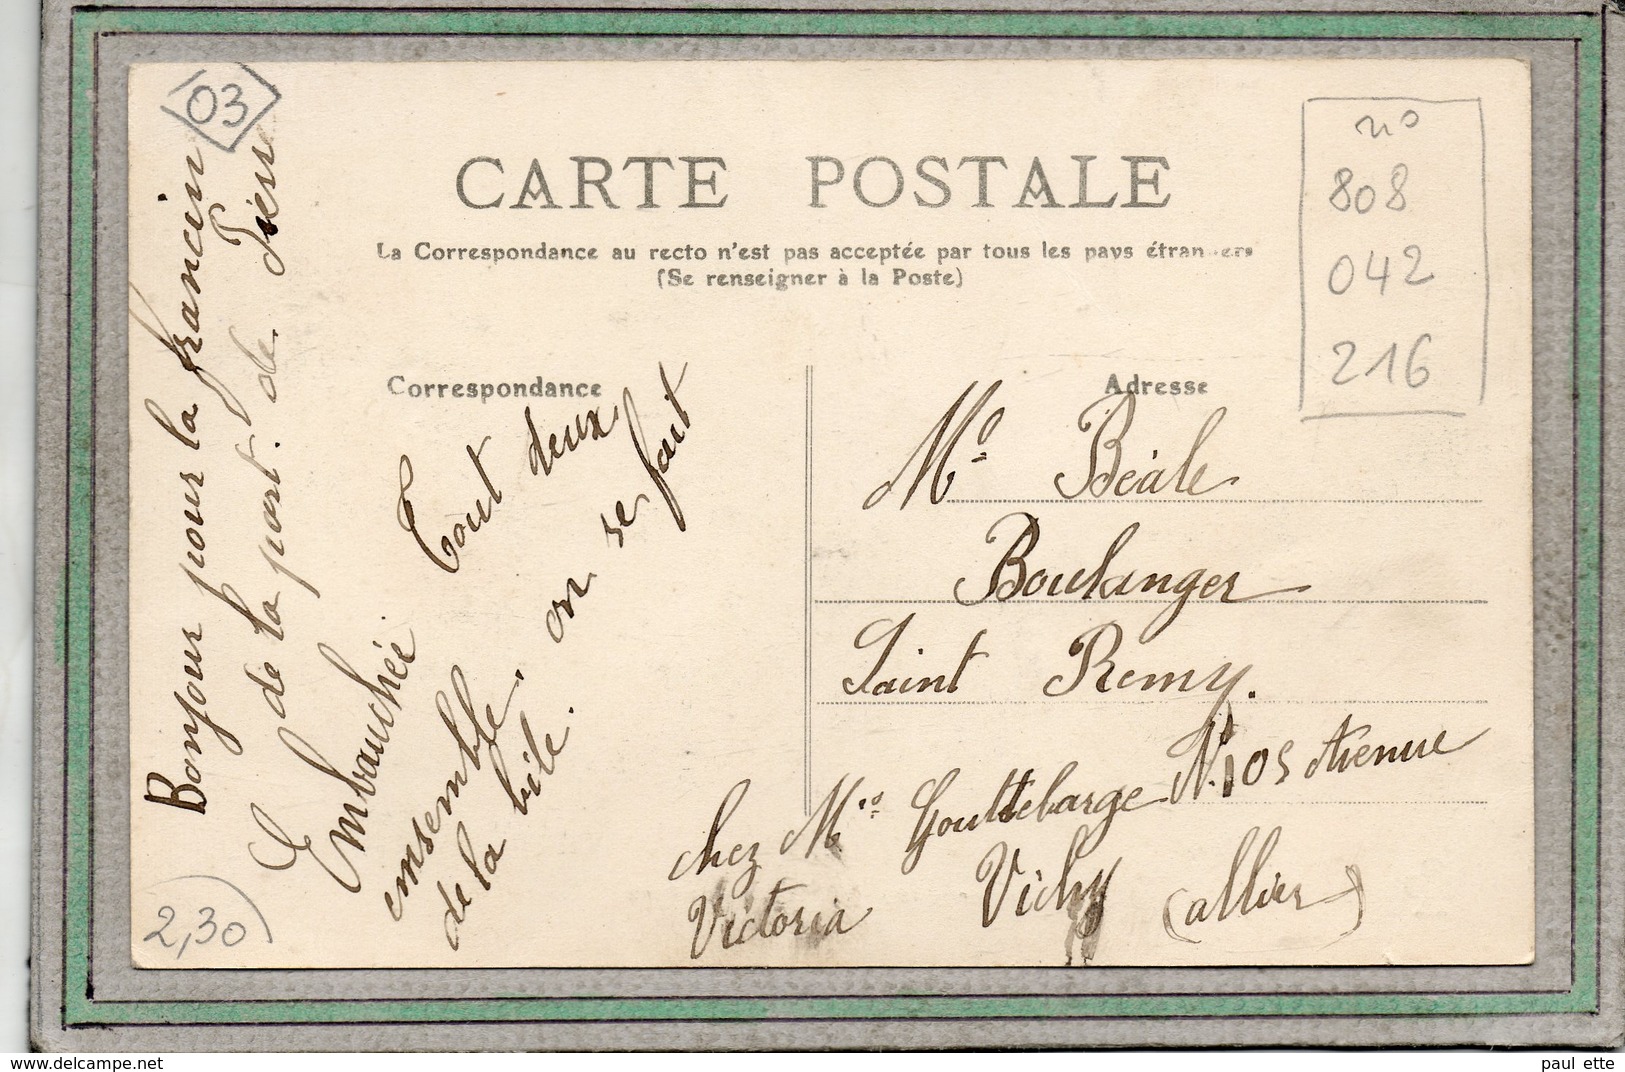 03
n°
808
042
216
CARTE POSTALE
La Correspondance au recto n'est pas acceptée par tous les pays étrangers
(Se renseigner à la Poste)
Correspondance
Adresse
Bonjour pour la francin
de la part. de
Embauchée Tout deux
ensemble. on se fait
de la bile.
Mr Béale
Boulanger
Saint Remy.
chez Mr Gouttebarge N. 105 Avenue
Victoria Vichy (allier)
2,30
paul ette